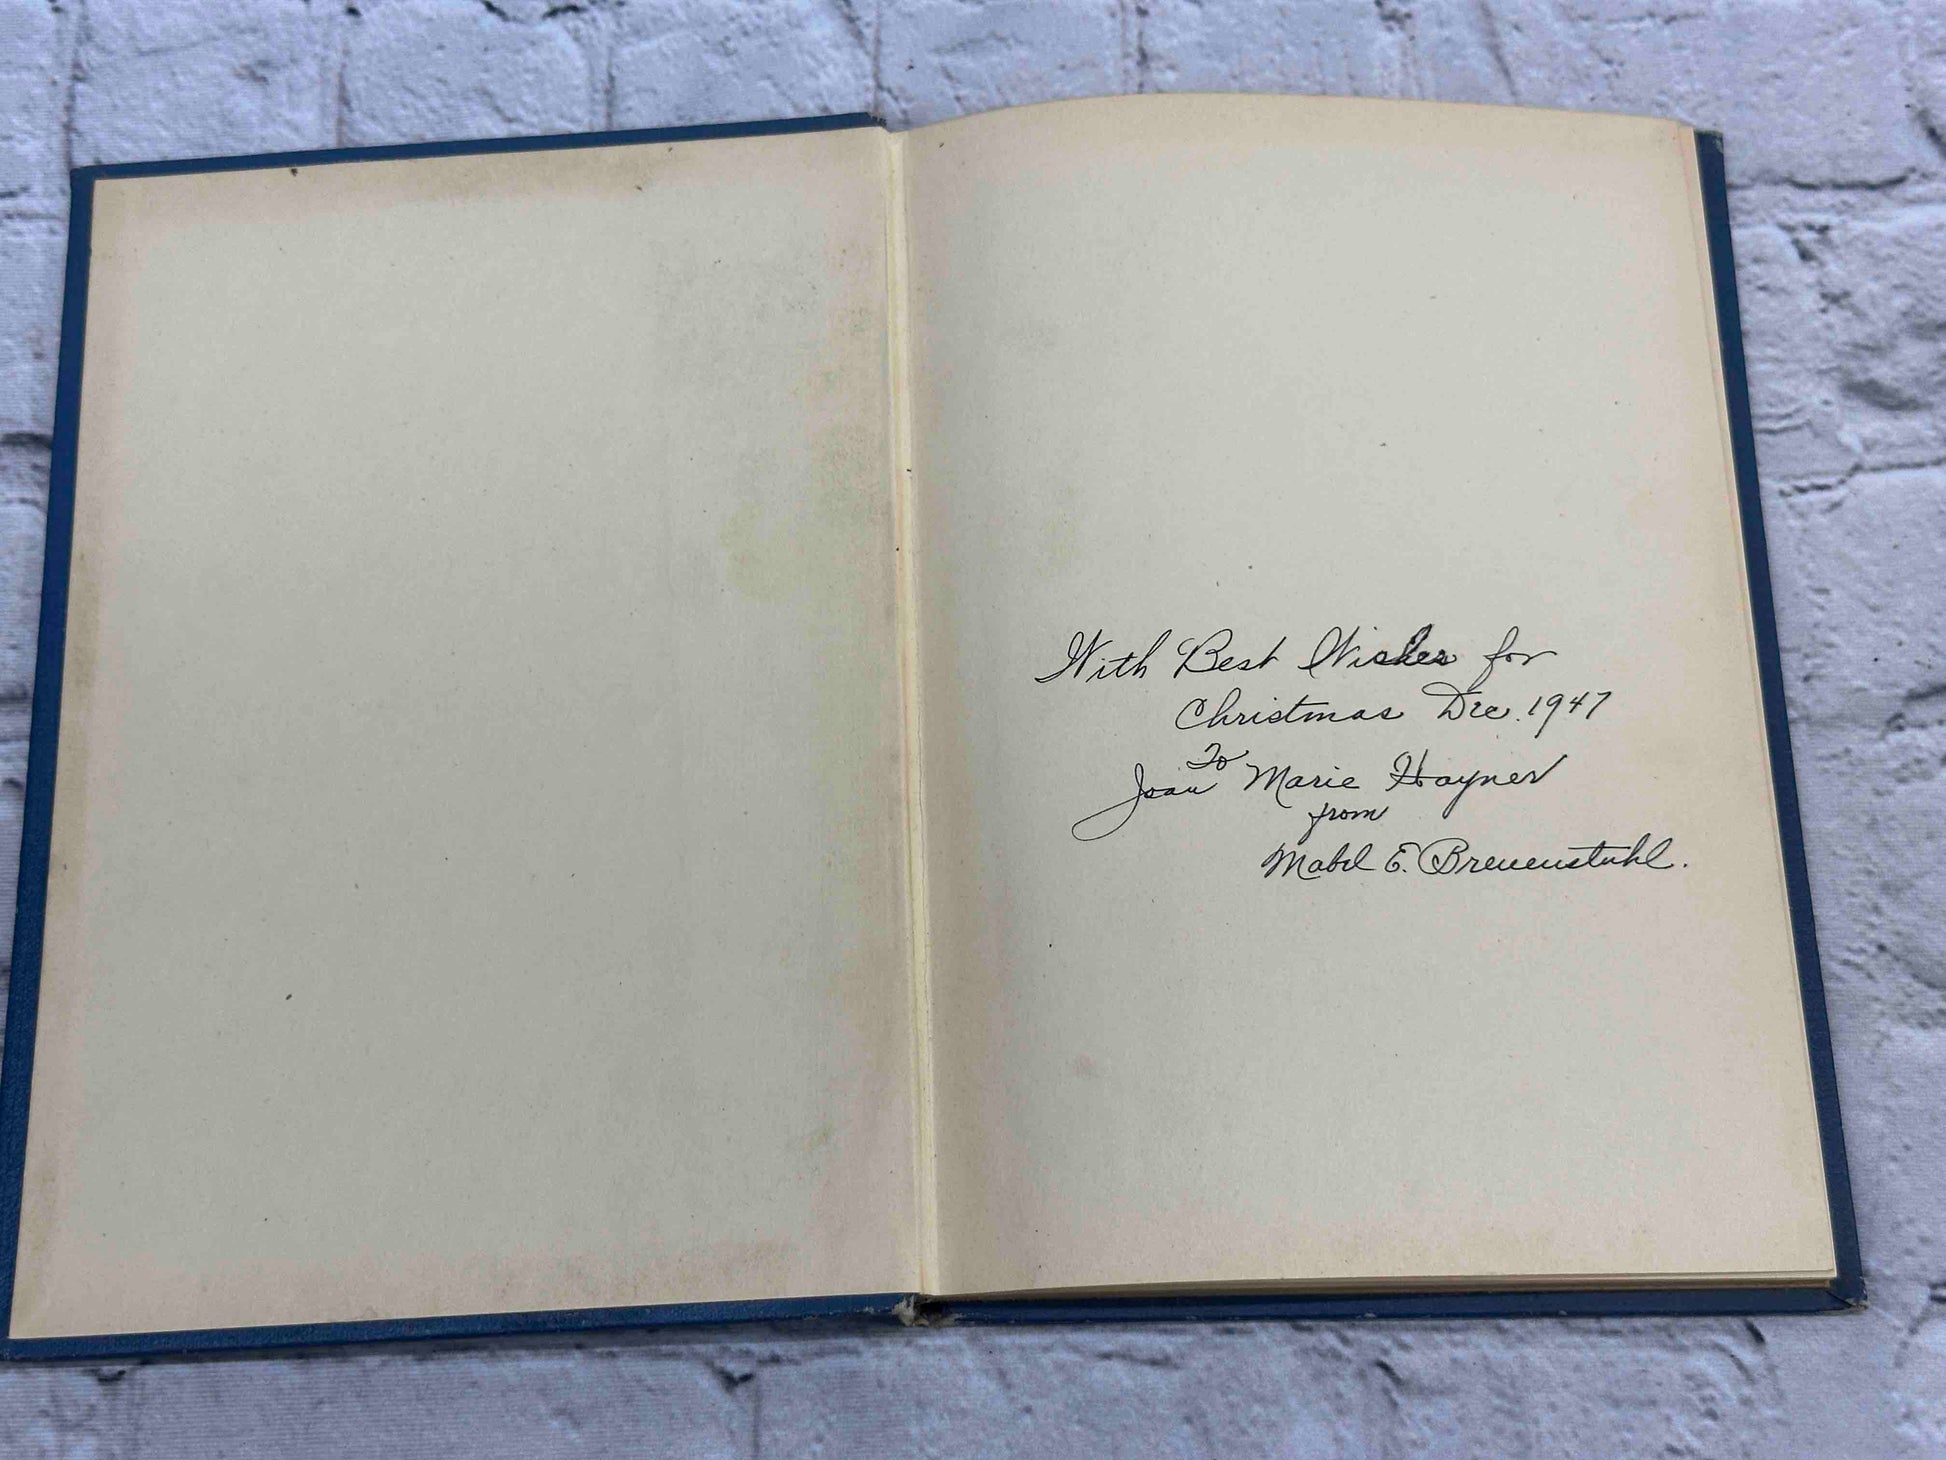 With Best Wishes for
Christmas Dec. 1947
To
Joan Marie Hayner
from
Mabel E. Breuenstuhl.